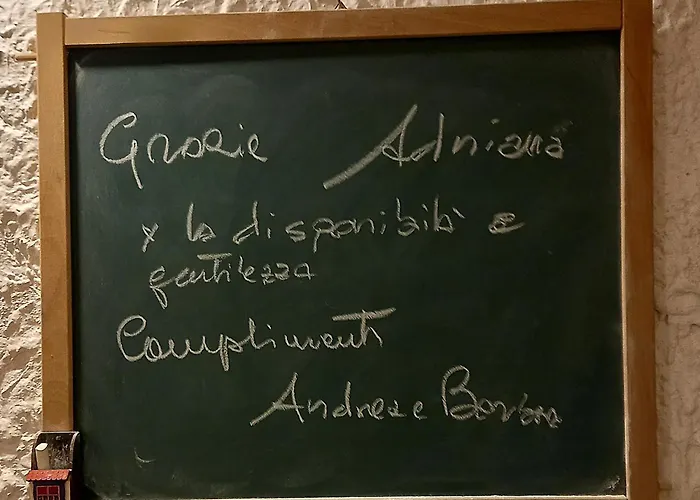 Grazie Adriana
x la disponibilità e
gentilezza
Complimenti
Andrea e Barbara